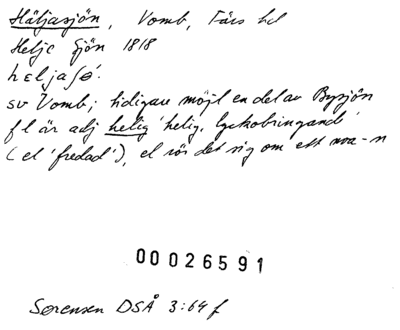 Häljasjön, Vomb, Färs hd
Helje Sjön 1818
heljasø.
sv Vomb; tidigare möjl en del av Bysjön
fl är adj helig 'helig, lyckobringand'
(el 'fredad'), el rör det sig om ett -n
00026591
Sørensen DSÅ 3:64 f